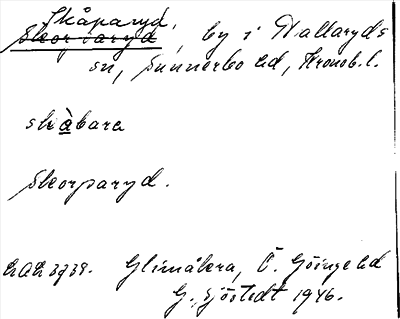 Skåparyd,
Skorparyd, by i Hallaryds
sn, Sunnerbo hd, Kronob. l.
skàbara
Skorparyd.
Glimåkra, Ö. Göinge hd
G. Sjöstedt 1946.